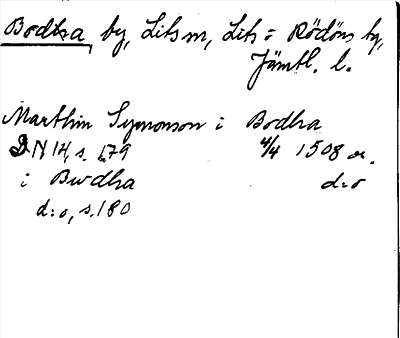 Bodha, by, Lits m, Lits = Rödöns tg,
Jämtl. l.
Marthin Symonson i Bodha
DN 14, s. 179 4/4 1508 or.
i Bwdha d:o
d:o, s. 180